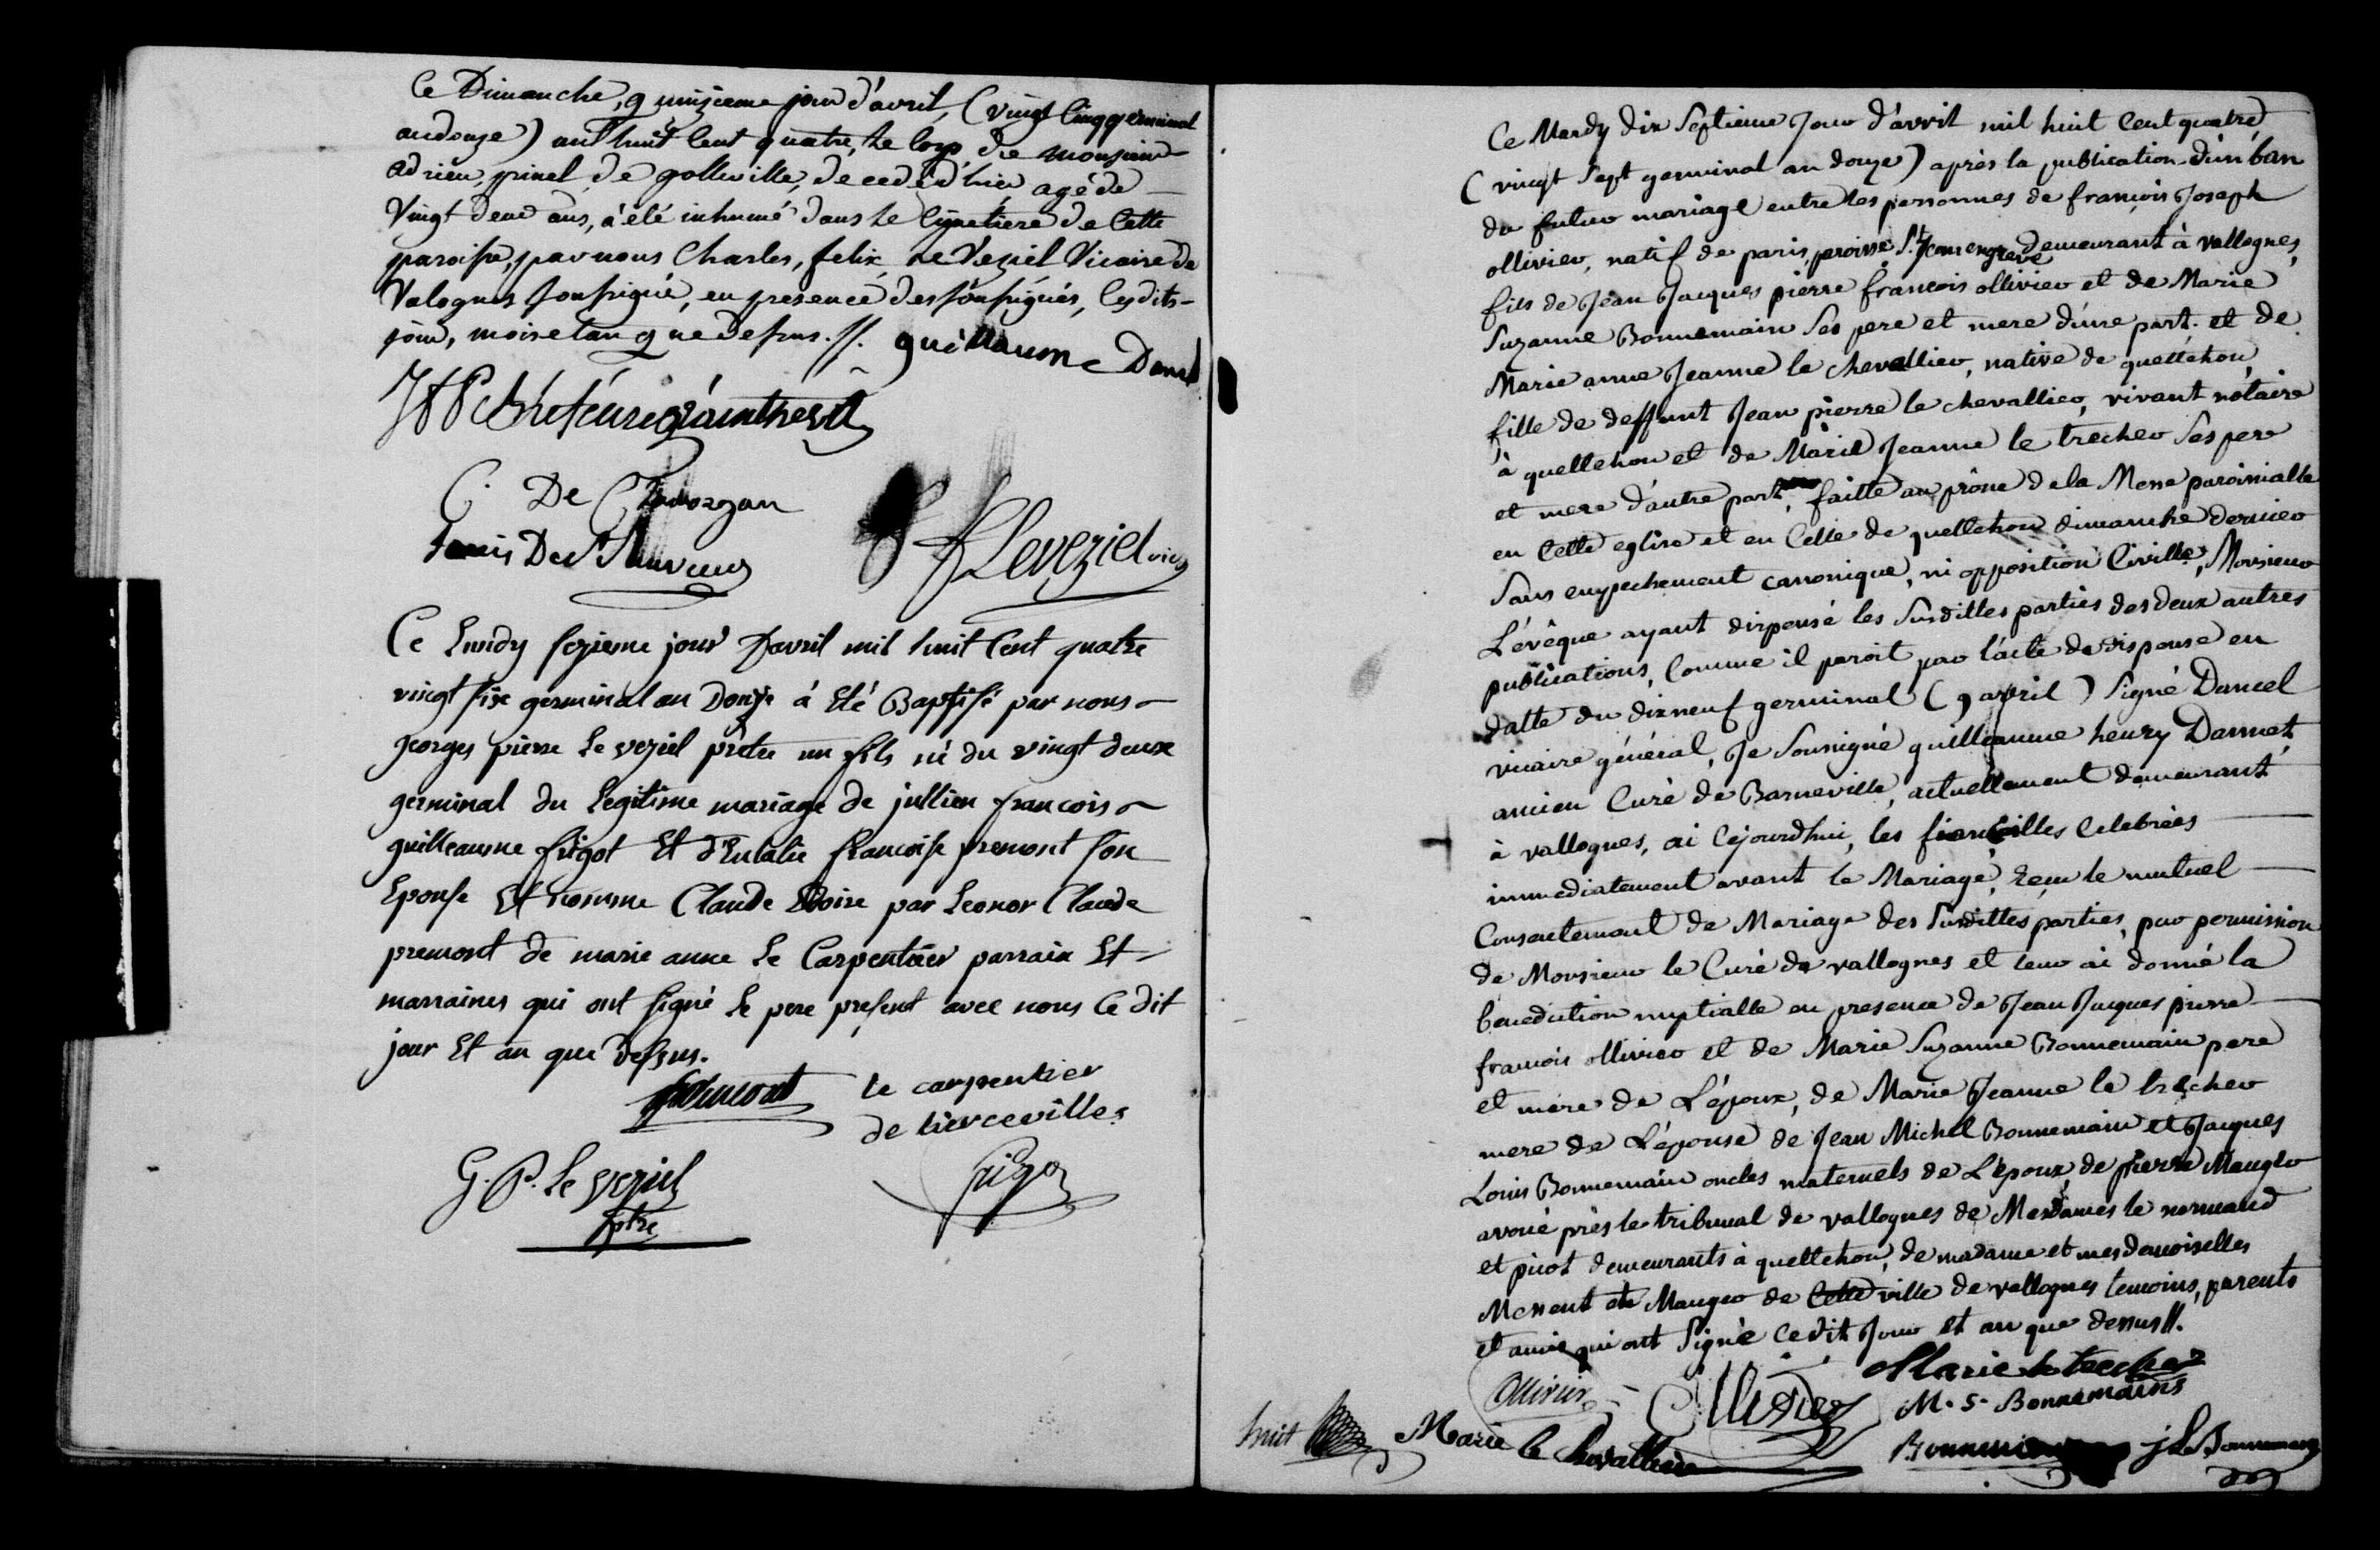 Ce Dimanche, quinzieme jour d'avril, (vingt Cinq germinal
an douze) an huit Cent quatre, le corps de monsieur
adrien, pinel, de golleville, decedé d'hier, agé de
Vingt deux ans, à été inhumé dans le Cimetiere de Cette
paroisse, par nous Charles, felix, Le Veziel Vicaire de
Valognes soussigné, en presence des soussignés, lesdits
jour, mois et an que dessus. //. guillaume
C. De
Louis De St
Leveziel vic
Ce Lundy sezieme jour Davril mil huit Cent quatre
vingt six germinal an Douze à Eté Baptisé par nous
georges pierre Le veziel prêtre un fils né du vingt deux
germinal du Legitime mariage de jullien francois
guilleaume frigot Et d'Eulalie francoise premont son
Epouse Et nommé Claude par Leonor Claude
premont de marie anne Le Carpentier parrain Et
marraines qui ont signé Le pere present avec nous Ce dit
jour Et an que dessus.
premont
le carpentier
de tierceville
G. P. Le veziel
ptre
frigot
Ce Mardy dix Septieme Jour d'avril mil huit Cent quatre
(vingt Sept germinal an douze) après la publication d'un ban
du futur mariage entre les personnes de françois Joseph
ollivier, natif de paris, paroisse St. Jean en greve demeurant à vallognes,
fils de Jean Jacques pierre françois ollivier et de Marie
Suzanne Bonnemain Ses pere et mere d'une part. et de
Marie anne Jeanne le chevallier, native de quettehou,
fille de deffunt Jean pierre le chevallier, vivant notaire
à quettehou et de Marie Jeanne le trecher Ses pere
et mere d'autre part, faitte au prône de la Messe paroissialle
en Cette eglise et en Celle de quettehou dimanche dernier
Sans empechement canonique, ni opposition Civille, Monsieur
L'évêque ayant dispensé les Susdittes parties des deux autres
publications, Comme il paroit par l'acte de dispense en
datte du dix neuf germinal (9 avril) Signé Dancel
vicaire général, Je Soussigné guilleaume henry Dannet
ancien Curé de Barneville, actuellement demeurant
à vallognes, ai Cejourdhui, les fiancailles Celebrées
immediatement avant le Mariage, reçu le mutuel
Consentement de Mariage des Susdittes parties, par permission
de Monsieur le Curé de vallognes et leur ai donné la
benediction nuptialle en presence de Jean Jacques pierre
francois ollivier et de Marie Suzanne Bonnemain pere
et mere de L'époux, de Marie Jeanne le trecher
mere de L'épouse de Jean Michel Bonnemain et Jacques
Louis Bonnemain oncles maternels de L'époux, de pierre Mauger
avoué près le tribunal de vallognes de Mesdames le normand
et picot demeurants à quettehou, de madame et mesdemoiselles
et Mauger de Cette ville de vallognes temoins, parents
et amis qui ont Signé Cedit Jour et an que dessus //.
Marie le trecher
Ollivier
Ollivier
M. S. Bonnemains
huit
Marie le chevallier
Bonnemain
J L Bonnemains